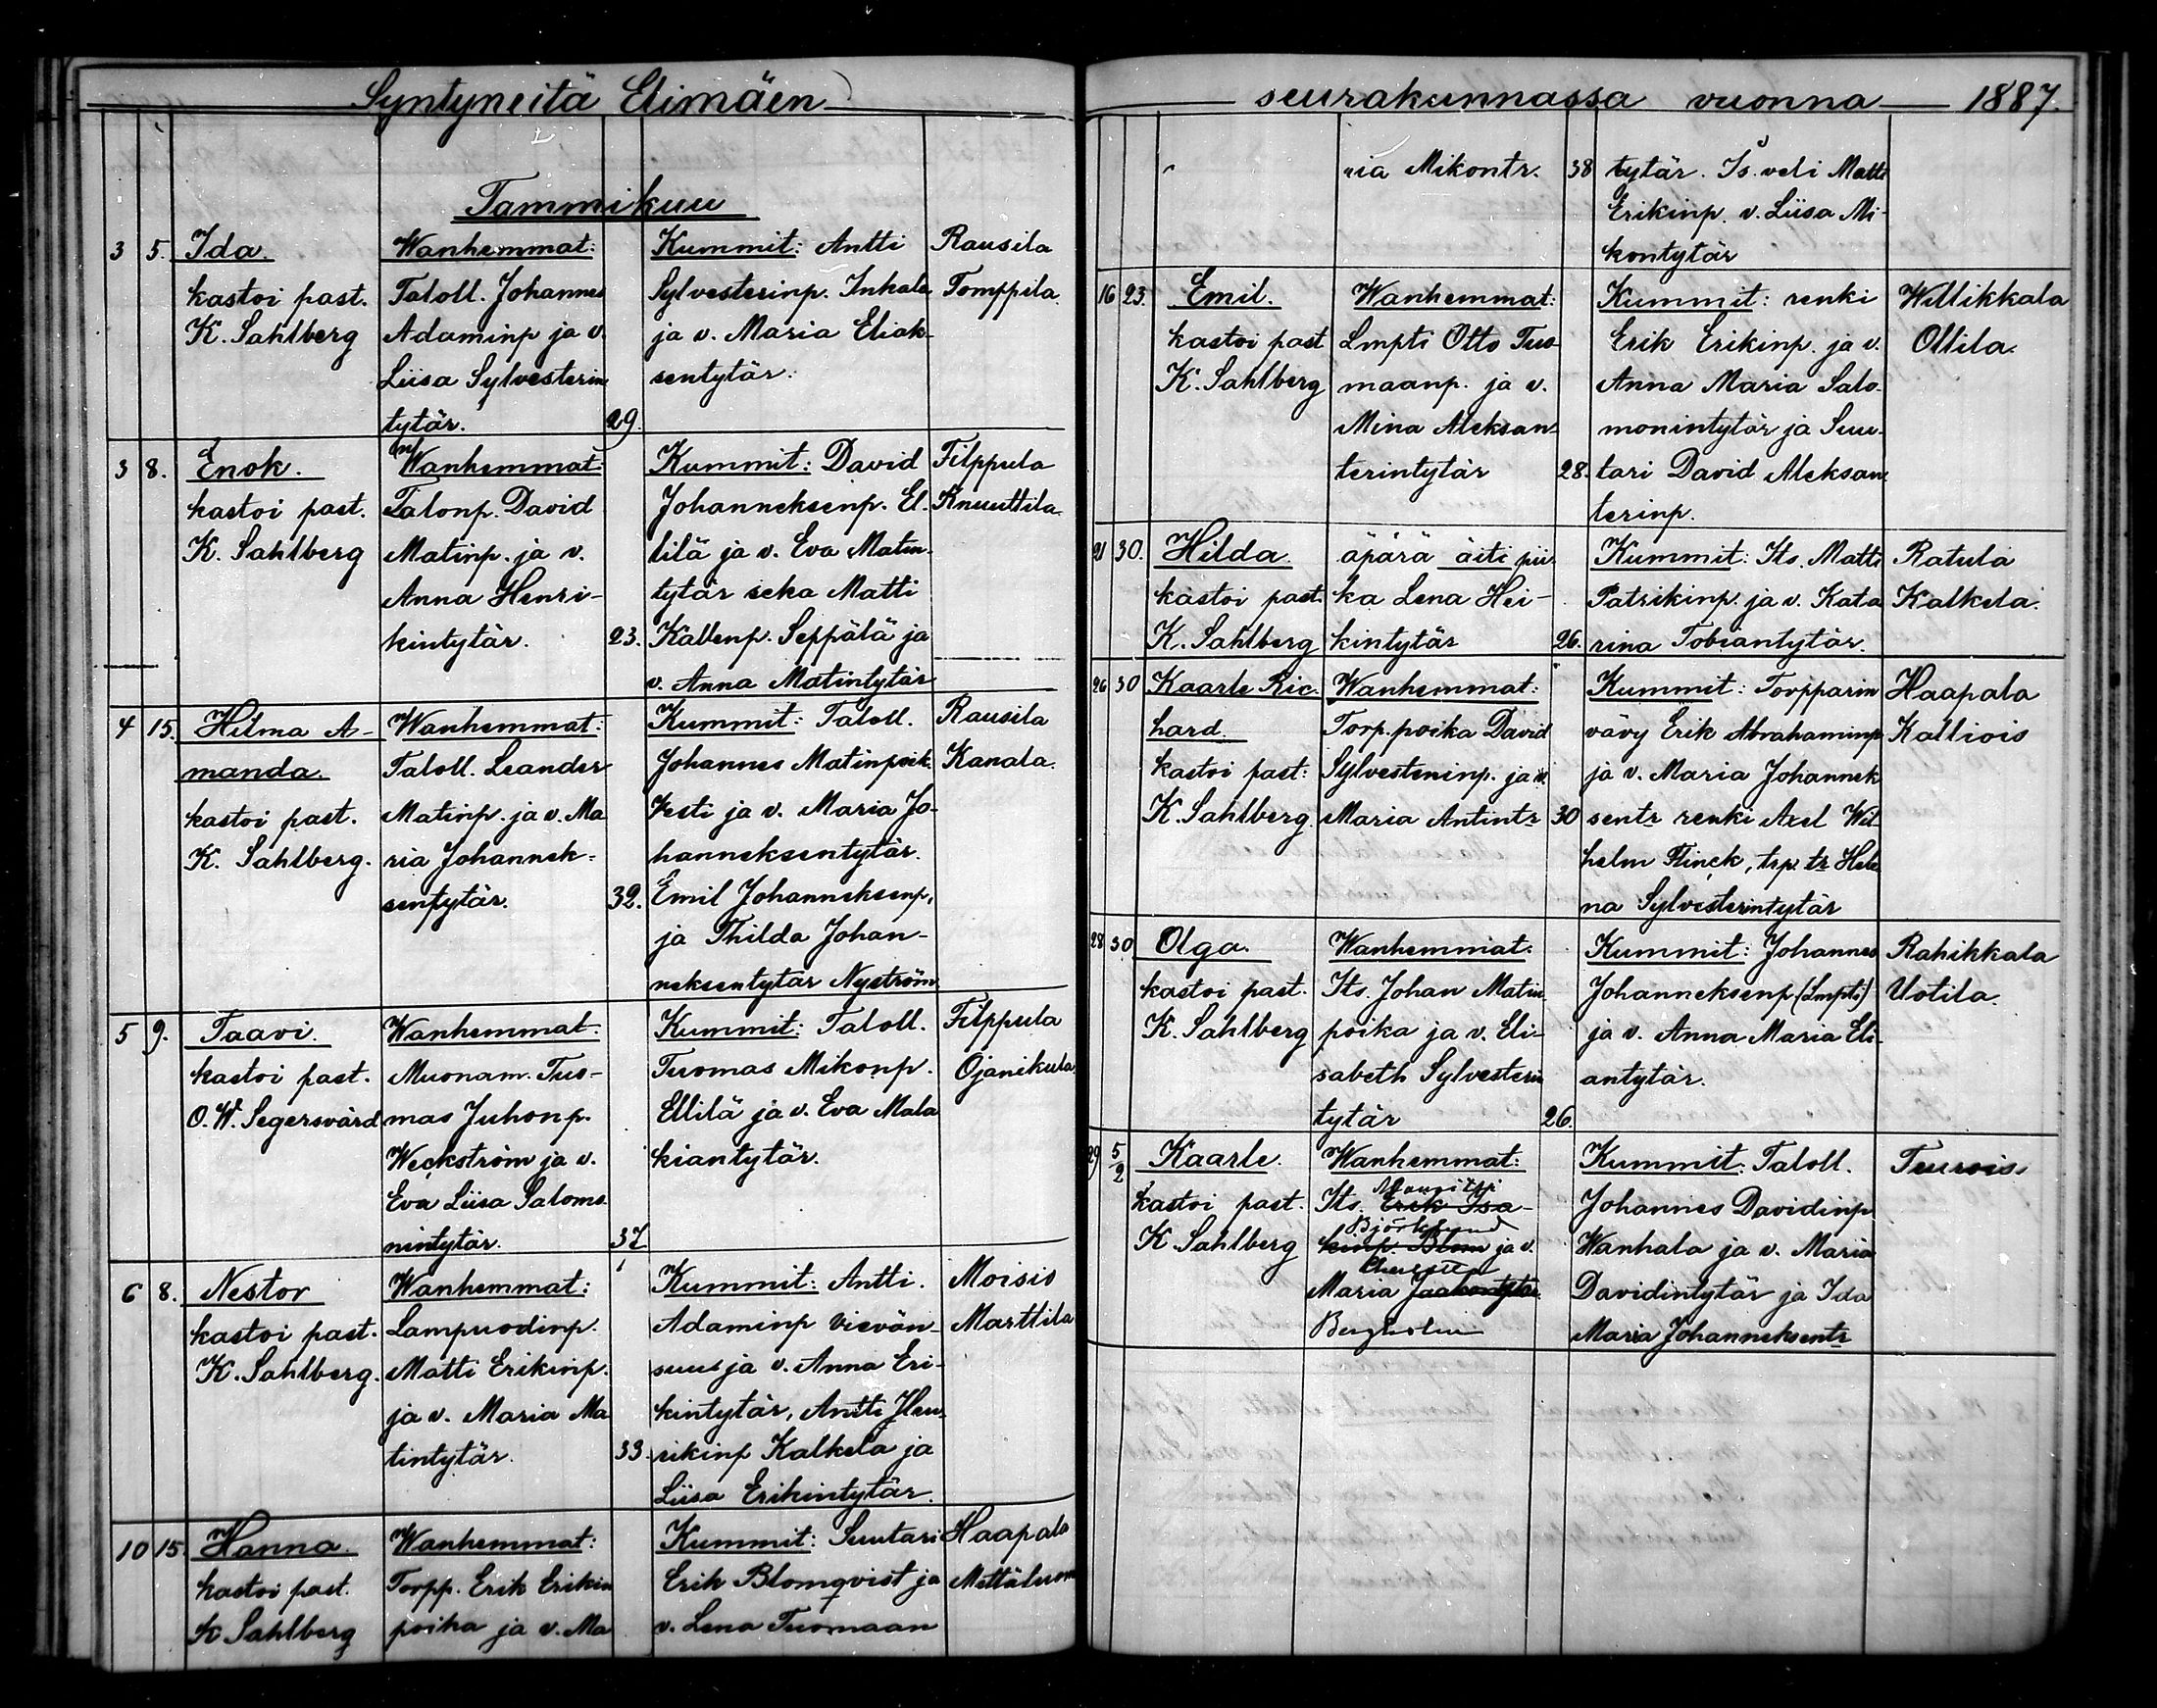 Syntyneitä Elimäen
Tammikuu
3 5. Ida.
kastoi past.
K. Sahlberg
Wanhemmat:
Taloll. Johannes
Adaminp ja v.
Liisa Sylvesterin
tytär. 29.
Kummit: Antti
Sylvesterinp. Inkala
ja v. Maria Eliak-
sentytär.
Rausila
Tomppila.
3 8. Enok.
kastoi past.
K. Sahlberg
Wanhemmat:
Talonp. David
Matinp. ja v.
Anna Henri-
kintytär. 23.
Kummit: David
Johanneksenp. El-
lilä ja v. Eva Matin-
tytär seka Matti
Kallenp. Seppälä ja
v. Anna Matintytär
Filppula
Knuuttila.
4 15. Hilma A-
manda.
kastoi past.
K. Sahlberg.
Wanhemmat:
Taloll. Leander
Matinp. ja v. Ma
ria Johannek-
sentytär. 32.
Kummit: Taloll.
Johannes Matinpoik.
Vesti ja v. Maria Jo-
hanneksentytär.
Emil Johanneksenp,
ja Thilda Johan-
neksentytär Nyström
Rausila
Kanala.
5 9. Taavi.
kastoi past.
O. W. Segersvärd
Wanhemmat:
Muonam. Tuo-
mas Juhonp.
Weckström ja v.
Eva Liisa Salomo
nintytär. 37
Kummit: Taloll.
Tuomas Mikonp.
Ellilä ja v. Eva Mala
kiantytär.
Filppula
Ojanikula
6 8. Nestor
kastoi past.
K. Sahlberg.
Wanhemmat:
Lampuodinp.
Matti Erikinp.
ja v. Maria Ma
tintytär. 33.
Kummit: Antti.
Adaminp Vievän-
suus ja v. Anna Eri-
kintytär, Antti Hen-
rikinp Kalkela ja
Liisa Erikintytär.
Moisio
Marttila
10 15. Hanna.
kastoi past.
K Sahlberg
Wanhemmat:
Torpp. Erik Erikin
poika ja v. Ma
Kummit: Suutari
Erik Blomqvist ja
v. Lena Tuomaan
Haapala
Mettäluom
seurakunnassa vuonna 1887.
ria Mikontr. 38
tytär. Is. veli Matti
Erikinp. v. Liisa Mi-
kontytär
16 23. Emil.
kastoi past
K. Sahlberg
Wanhemmat:
Lmpti Otto Tuo-
maanp. ja v.
Mina Aleksan-
terintytär 28.
Kummit: renki
Erik Erikinp. ja v.
Anna Maria Salo-
monintytär ja Suu-
tari David Aleksan-
terinp.
Willikkala
Ollila.
21 30. Hilda.
kastoi past.
K. Sahlberg
äpärä äiti pii-
ka Lena Hei-
kintytär 26.
Kummit: Its. Matti
Patrikinp. ja v. Kata
rina Tobiantytär.
Ratula
Kalkela.
26 30 Kaarle Ric-
hard.
kastoi past:
K. Sahlberg.
Wanhemmat:
Torp. poika David
Sylvesterinp. ja v.
Maria Antintr 30
Kummit: Torpparin
vävy Erik Abrahaminp
ja v. Maria Johannek
sentr renki Axel Wil-
helm Flinck, trp. tr Hele
na Sylvesterintytär
Haapala
Kalliois
28 30 Olga.
kastoi past.
K. Sahlberg
Wanhemmat:
Its. Johan Matin
poika ja v. Eli-
sabeth Sylvesterin
tytär 26.
Kummit: Johannes
Johanneksenp. (Lmpti)
ja v. Anna Maria Eli-
antytär.
Rahikkala
Uotila.
29 5/2 Kaarle.
kastoi past.
K. Sahlberg
Wanhemmat:
Mauritzi
Its. Erik Isa-
Björklund
kinp. Blom ja v.
Maria Jaakontytär
Bergholm
Kummit: Taloll.
Johannes Davidinp
Wanhala ja v. Maria
Davidintytär ja Ida
Maria Johanneksentr
Teurois